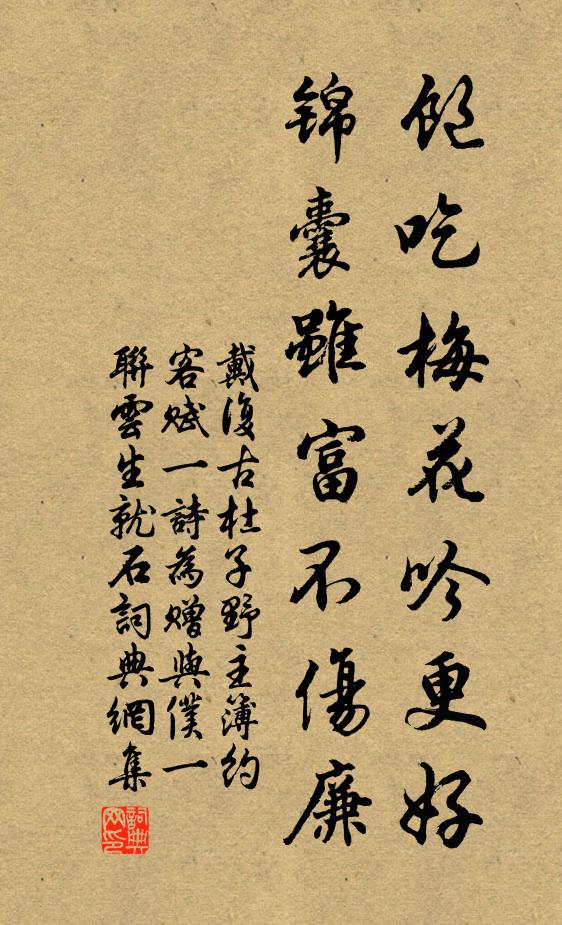 飽吃梅花吟更好
錦囊雖富不傷廉
戴復古杜子野主簿約
客賦一詩為贈與僕一
聯雲生就石詞典網集
詞典网印